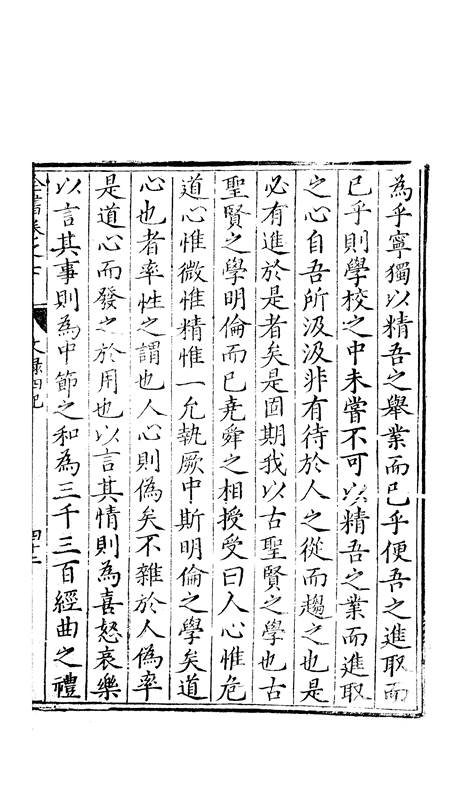 為乎寧獨以精吾之舉業而已乎便吾之進取而
已乎則學校之中未嘗不可以精吾之業而進取
之心自吾所汲汲非有待於人之從而趨之也是
必有進於是者矣是固期我以古聖賢之學也古
聖賢之學明倫而已堯舜之相授受曰人心惟危
道心惟微惟精惟一允執厥中斯明倫之學矣道
心也者率性之謂也人心則偽矣不雜於人偽率
是道心而發之於用也以言其情則為喜怒哀樂
以言其事則為中節之和為三千三百經曲之禮
全書卷之七
文錄四 記
四十二